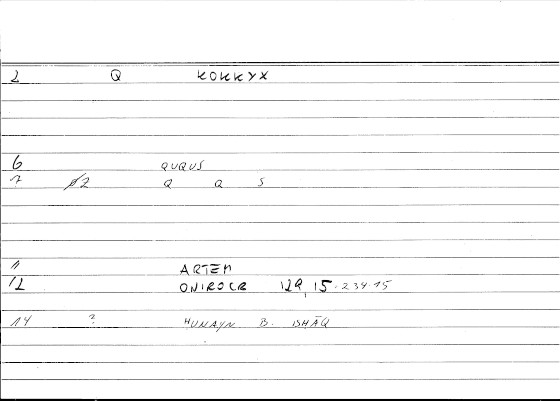 2 Q KOKKYX
6 QUQUS
7 02 Q Q S
11 ARTEM
12 ONIROCR 129, 15 · 234 · 15
14 ? HUNAYN B. ISHĀQ